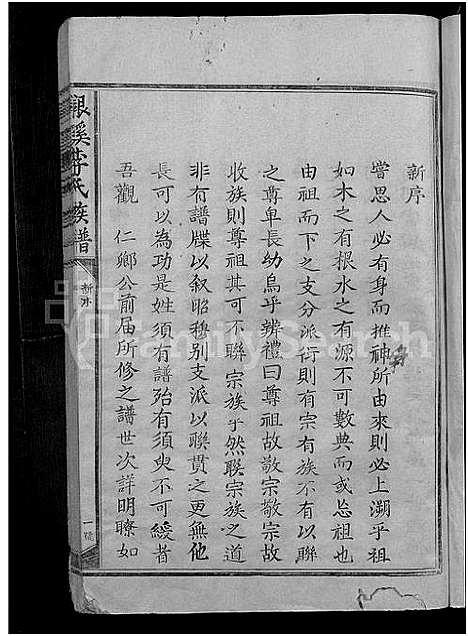 新序
嘗思人必有身而推身所由來則必上溯乎祖
如木之有根水之有源不可數典而或忘祖也
由祖而下之支分派衍則有宗有族不有以聯
之尊卑長幼烏乎辨禮曰尊祖故敬宗敬宗故
收族則尊祖其可不聯宗族乎然聯宗族之道
非有譜牒以叙昭穆别支派以聯貫之更無他
長可以為功是姓須有譜殆有須臾不可緩者
吾觀 仁鄉公前届所修之譜世次詳明瞭如
銀溪李氏族譜
新序
一
FamilySearch